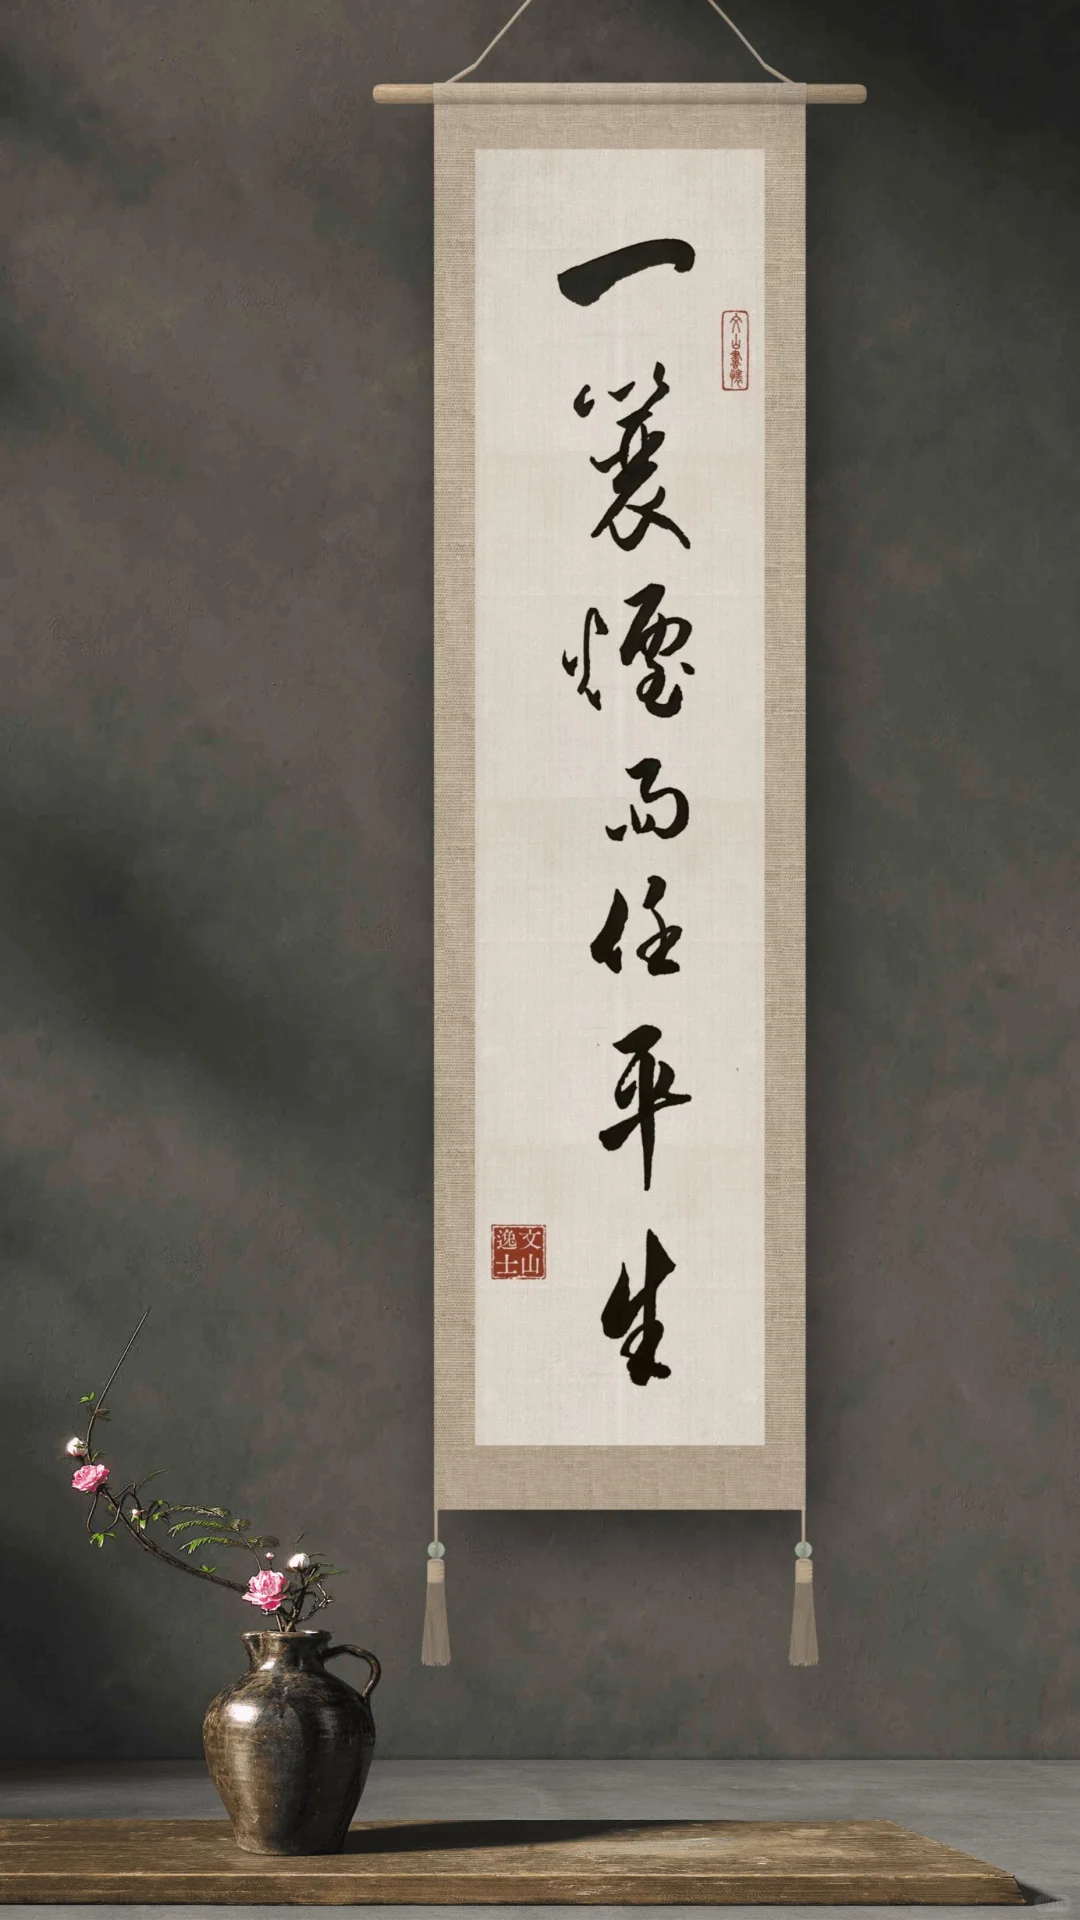 一蓑煙雨任平生
文山書
文山逸士